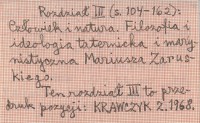 Rozdział III (s. 104-162):
Człowiek i natura. Filozofia i
ideologia taternicka i mary-
nistyczna Mariusza Zarus-
kiego.
Ten rozdział III to prze-
druk pozycji: KRAWCZYK Z. 1968.